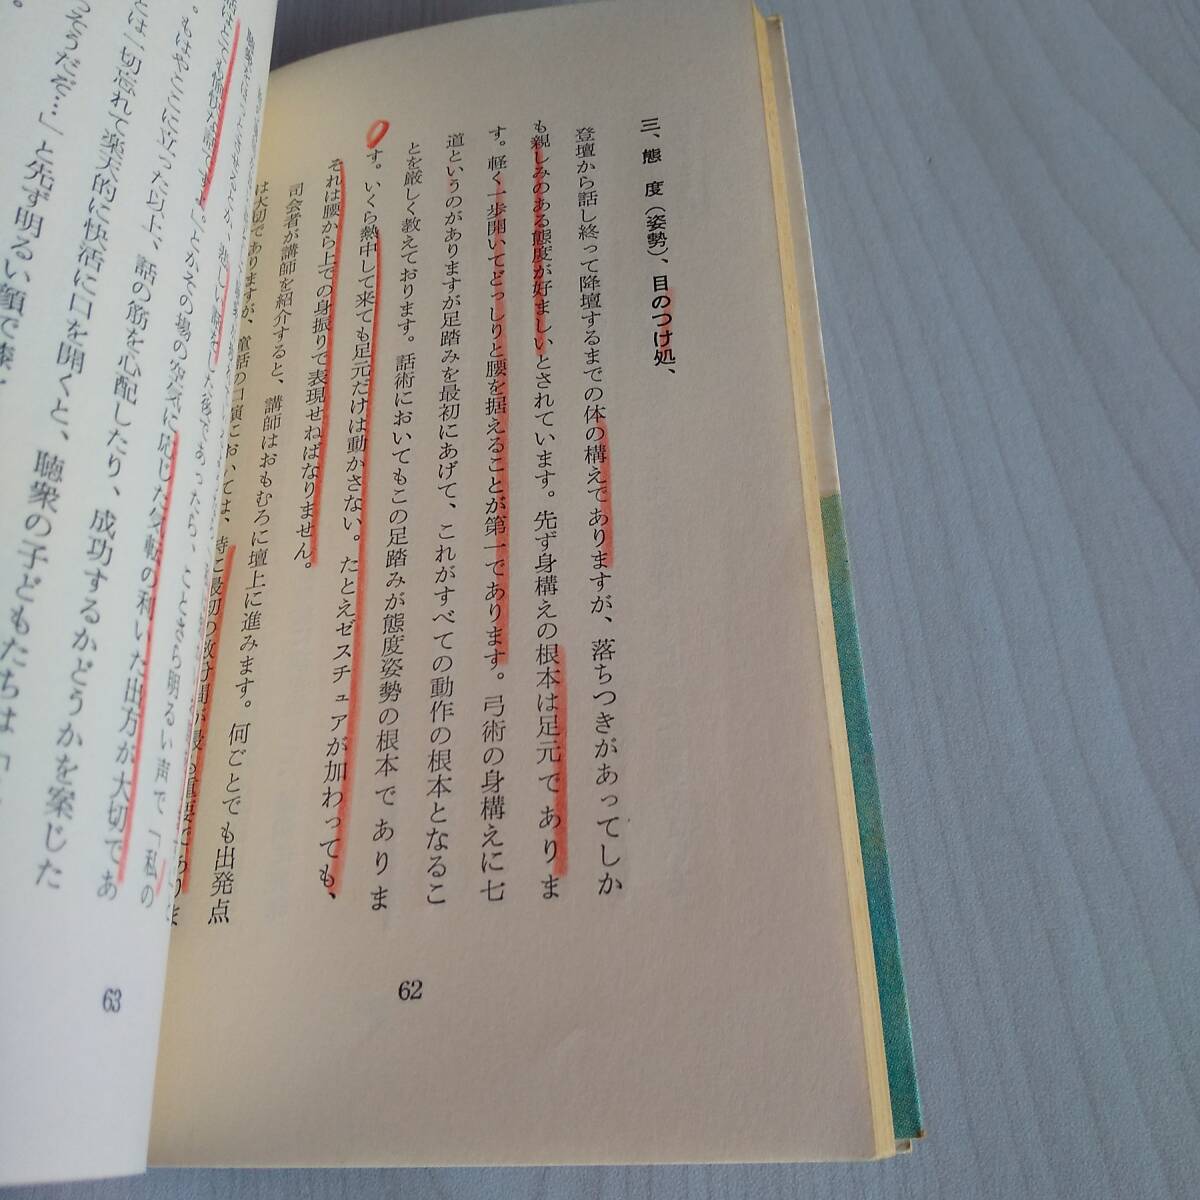 三、態　度（姿勢）、目のつけ処、
登壇から話し終って降壇するまでの体の構えでありますが、落ちつきがあってしか
も親しみのある態度が好ましいとされています。先ず身構えの根本は足元でありま
す。軽く一歩開いてどっしりと腰を据えることが第一であります。弓術の身構えに七
道というのがありますが足踏みを最初にあげて、これがすべての動作の根本となるこ
とを厳しく教えております。話術においてもこの足踏みが態度姿勢の根本でありま
す。いくら熱中して来ても足元だけは動かさない。たとえゼスチュアが加わっても、
それは腰から上での身振りで表現せねばなりません。
司会者が講師を紹介すると、講師はおもむろに壇上に進みます。何ごとでも出発点
は大切でありますが、童話の口演においては、特に最初の数分間が最も重要でありま
62
た後であったら、ことさら明るい声で「私の
話はとても愉快な話です。」とかその場の空気に応じた気転の利いた出方が大切であ
。もはやここに立った以上、話の筋を心配したり、成功するかどうかを案じた
とは一切忘れて楽天的に快活に口を開くと、聴衆の子どもたちは「
っそうだぞ…」と先ず明るい顔で
63